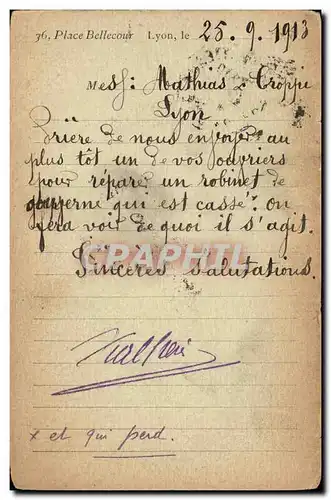 36, Place Bellecour Lyon, le 25. 9. 1913
Mess: Mathias & Croppi
Lyon
Prière de nous envoyer au
plus tôt un de vos ouvriers
pour réparer un robinet de
qui est cassé x on
fera voir de quoi il s'agit.
Sincères Salutations.
CPARAMA
x et qui perd.